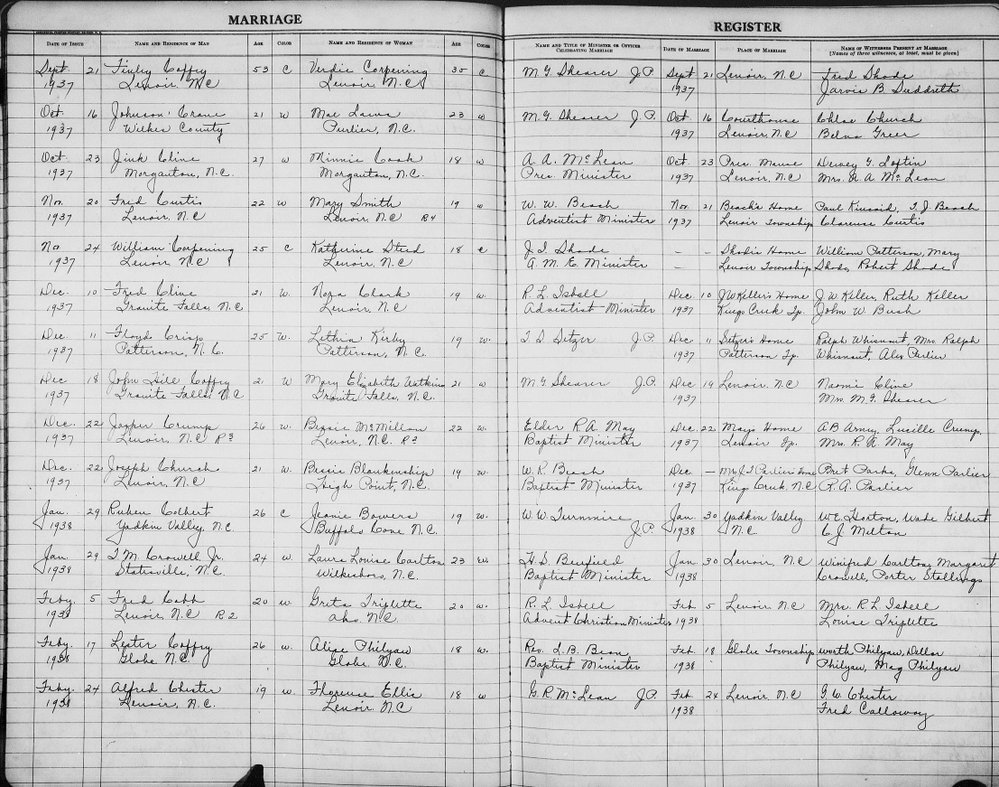 MARRIAGE
DATE OF ISSUE NAME AND RESIDENCE OF MAN AGE COLOR NAME AND RESIDENCE OF WOMAN AGE COLOR
Sept 21 Finley Coffey 53 C Verdie Corpening 35 C
1937 Lenoir, N.C Lenoir, N.C
Oct 16 Johnson Crane 21 W Mae Laws 23 W
1937 Wilkes County Purlier, N.C.
Oct. 23 Jink Cline 27 W Minnie Cook 18 W
1937 Morganton, N.C. Morganton, N.C.
Nov. 20 Fred Curtis 22 W Mary Smith 19 W
1937 Lenoir, N.C Lenoir, N.C R4
No 24 William Corpening 25 C Katherine Steed 18 C
1937 Lenoir N.C Lenoir, N.C
Dec. 10 Fred Cline 21 W. Nora Clark 19 W.
1937 Granite Falls, N.C Lenoir, N.C
Dec. 11 Floyd Crisp 25 W. Lethia Kirby 19 W.
1937 Patterson, N.C. Patterson, N.C.
Dec 18 John Hill Coffey 21 W Mary Elizabeth Watkins 21 W
1937 Granite Falls, N.C Granite Falls, N.C.
Dec. 22 Jasper Crump 26 W. Bessie McMillon 22 W.
1937 Lenoir, N.C R3 Lenoir, N.C. R3
Dec. 22 Joseph Church 21 W Bessie Blankenship 19 W.
1937 Lenoir, N.C High Point, N.C.
Jan. 29 Ruben Colbert 26 C Jeanie Bowers 19 W.
1938 Yadkin Valley, N.C. Buffalo Cove N.C.
Jan. 29 T.M. Crowell Jr. 24 W. Laura Louise Carlton 23 W.
1938 Statesville, N.C. Wilkesboro, N.C.
Feby. 5 Fred Cobb 20 W. Greta Triplette 20 W.
1938 Lenoir, N.C R2 N.C.
Feby. 17 Lester Coffey 26 W. Alice Philyaw 18 W.
1938 Globe N.C. Globe N.C.
Feby. 24 Alfred Chester 19 W. Florence Ellis 18 W
1938 Lenoir, N.C. Lenoir N.C
REGISTER
NAME AND TITLE OF MINISTER OR OFFICER CELEBRATING MARRIAGE DATE OF MARRIAGE PLACE OF MARRIAGE NAME OF WITNESSES PRESENT AT MARRIAGE
[Names of three witnesses, at least, must be given]
M.G. Shearer J.P. Sept 21 Lenoir, N.C Fred Shade
1937 Jarvis B Suddreth
M.G. Shearer J.P. Oct 16 Courthouse Chloe Church
1937 Lenoir, N.C Greer
A.A. McLean Oct. 23 Pres. Manse Dewey G. Loftin
Pres Minister 1937 Lenoir, N.C Mrs. A.A McLean
W.W. Beach Nov. 21 Beach's Home Paul Kincaid, T.J. Beach
Adventist Minister 1937 Lenoir Township Clarence Curtis
J.I. Shade – – Shade's Home William Patterson, Mary
A.M.E. Minister – Lenoir Township Shade, Robert Shade
R.L. Isbell Dec 10 J.W Keller's Home J.W Keller, Ruth Keller
Adventist Minister 1937 Kings Creek Tp. John W. Bush
T.D Setzer J.P. Dec 11 Setzer's Home Ralph Whisnant, Mrs. Ralph
1937 Patterson Tp. Whisnant, Alex Parlier
M.G Shearer J.P. Dec 19 Lenoir, N.C Naomi Cline
1937 Mrs. M.G. Shearer
Elder R.A. May Dec 22 Mays Home A.B Army, Lucille Crump,
Baptist Minister 1937 Lenoir Tp. Mrs. R.A. May
W.R. Beach Dec – Mrs. J.T Parlier's Home Bert Parks, Glenn Parlier
Baptist Minister 1937 King Creek, N.C R.A. Parlier
W.W. Turnmire Jan. 30 Yadkin Valley W.E. Horton, Wade Gilbert,
J.P. 1938 N.C. C.J. Melton
H.S. Benfield Jan 30 Lenoir, N.C Winifred Carlton, Margaret
Baptist Minister 1938 Crowell, Porter Stallings
R.L. Isbell Feb 5 Lenoir, N.C Mrs. R.L Isbell
Advent Christian Minister 1938 Louise Triplette
Rev. L.B. Bean Feb. 18 Globe Township worth Philyaw, Dellar
Baptist Minister 1938 Philyaw, Mag Philyaw
G.R. McLean J.P. Feb 24 Lenoir, N.C G.W. Chester
1938 Fred Calloway